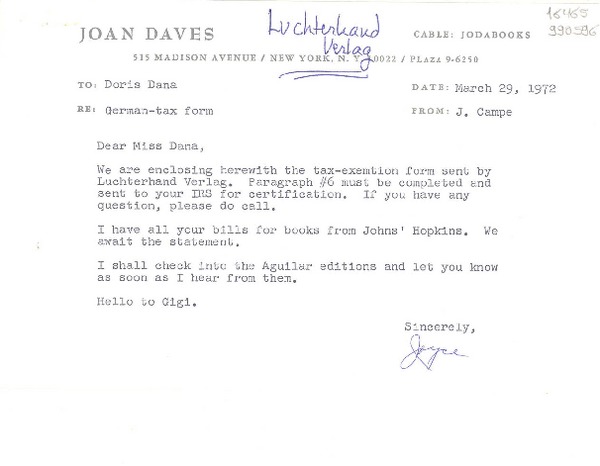 JOAN DAVES
Luchterhand
Verlag
CABLE: JODABOOKS
16465
990596
515 MADISON AVENUE / NEW YORK, N. Y. 10022 / PLAZA 9-6250
TO: Doris Dana
DATE: March 29, 1972
RE: German-tax form
FROM: J. Campe
Dear Miss Dana,
We are enclosing herewith the tax-exemtion form sent by
Luchterhand Verlag. Paragraph #6 must be completed and
sent to your IRS for certification. If you have any
question, please do call.
I have all your bills for books from Johns' Hopkins. We
await the statement.
I shall check into the Aguilar editions and let you know
as soon as I hear from them.
Hello to Gigi.
Sincerely,
Joyce